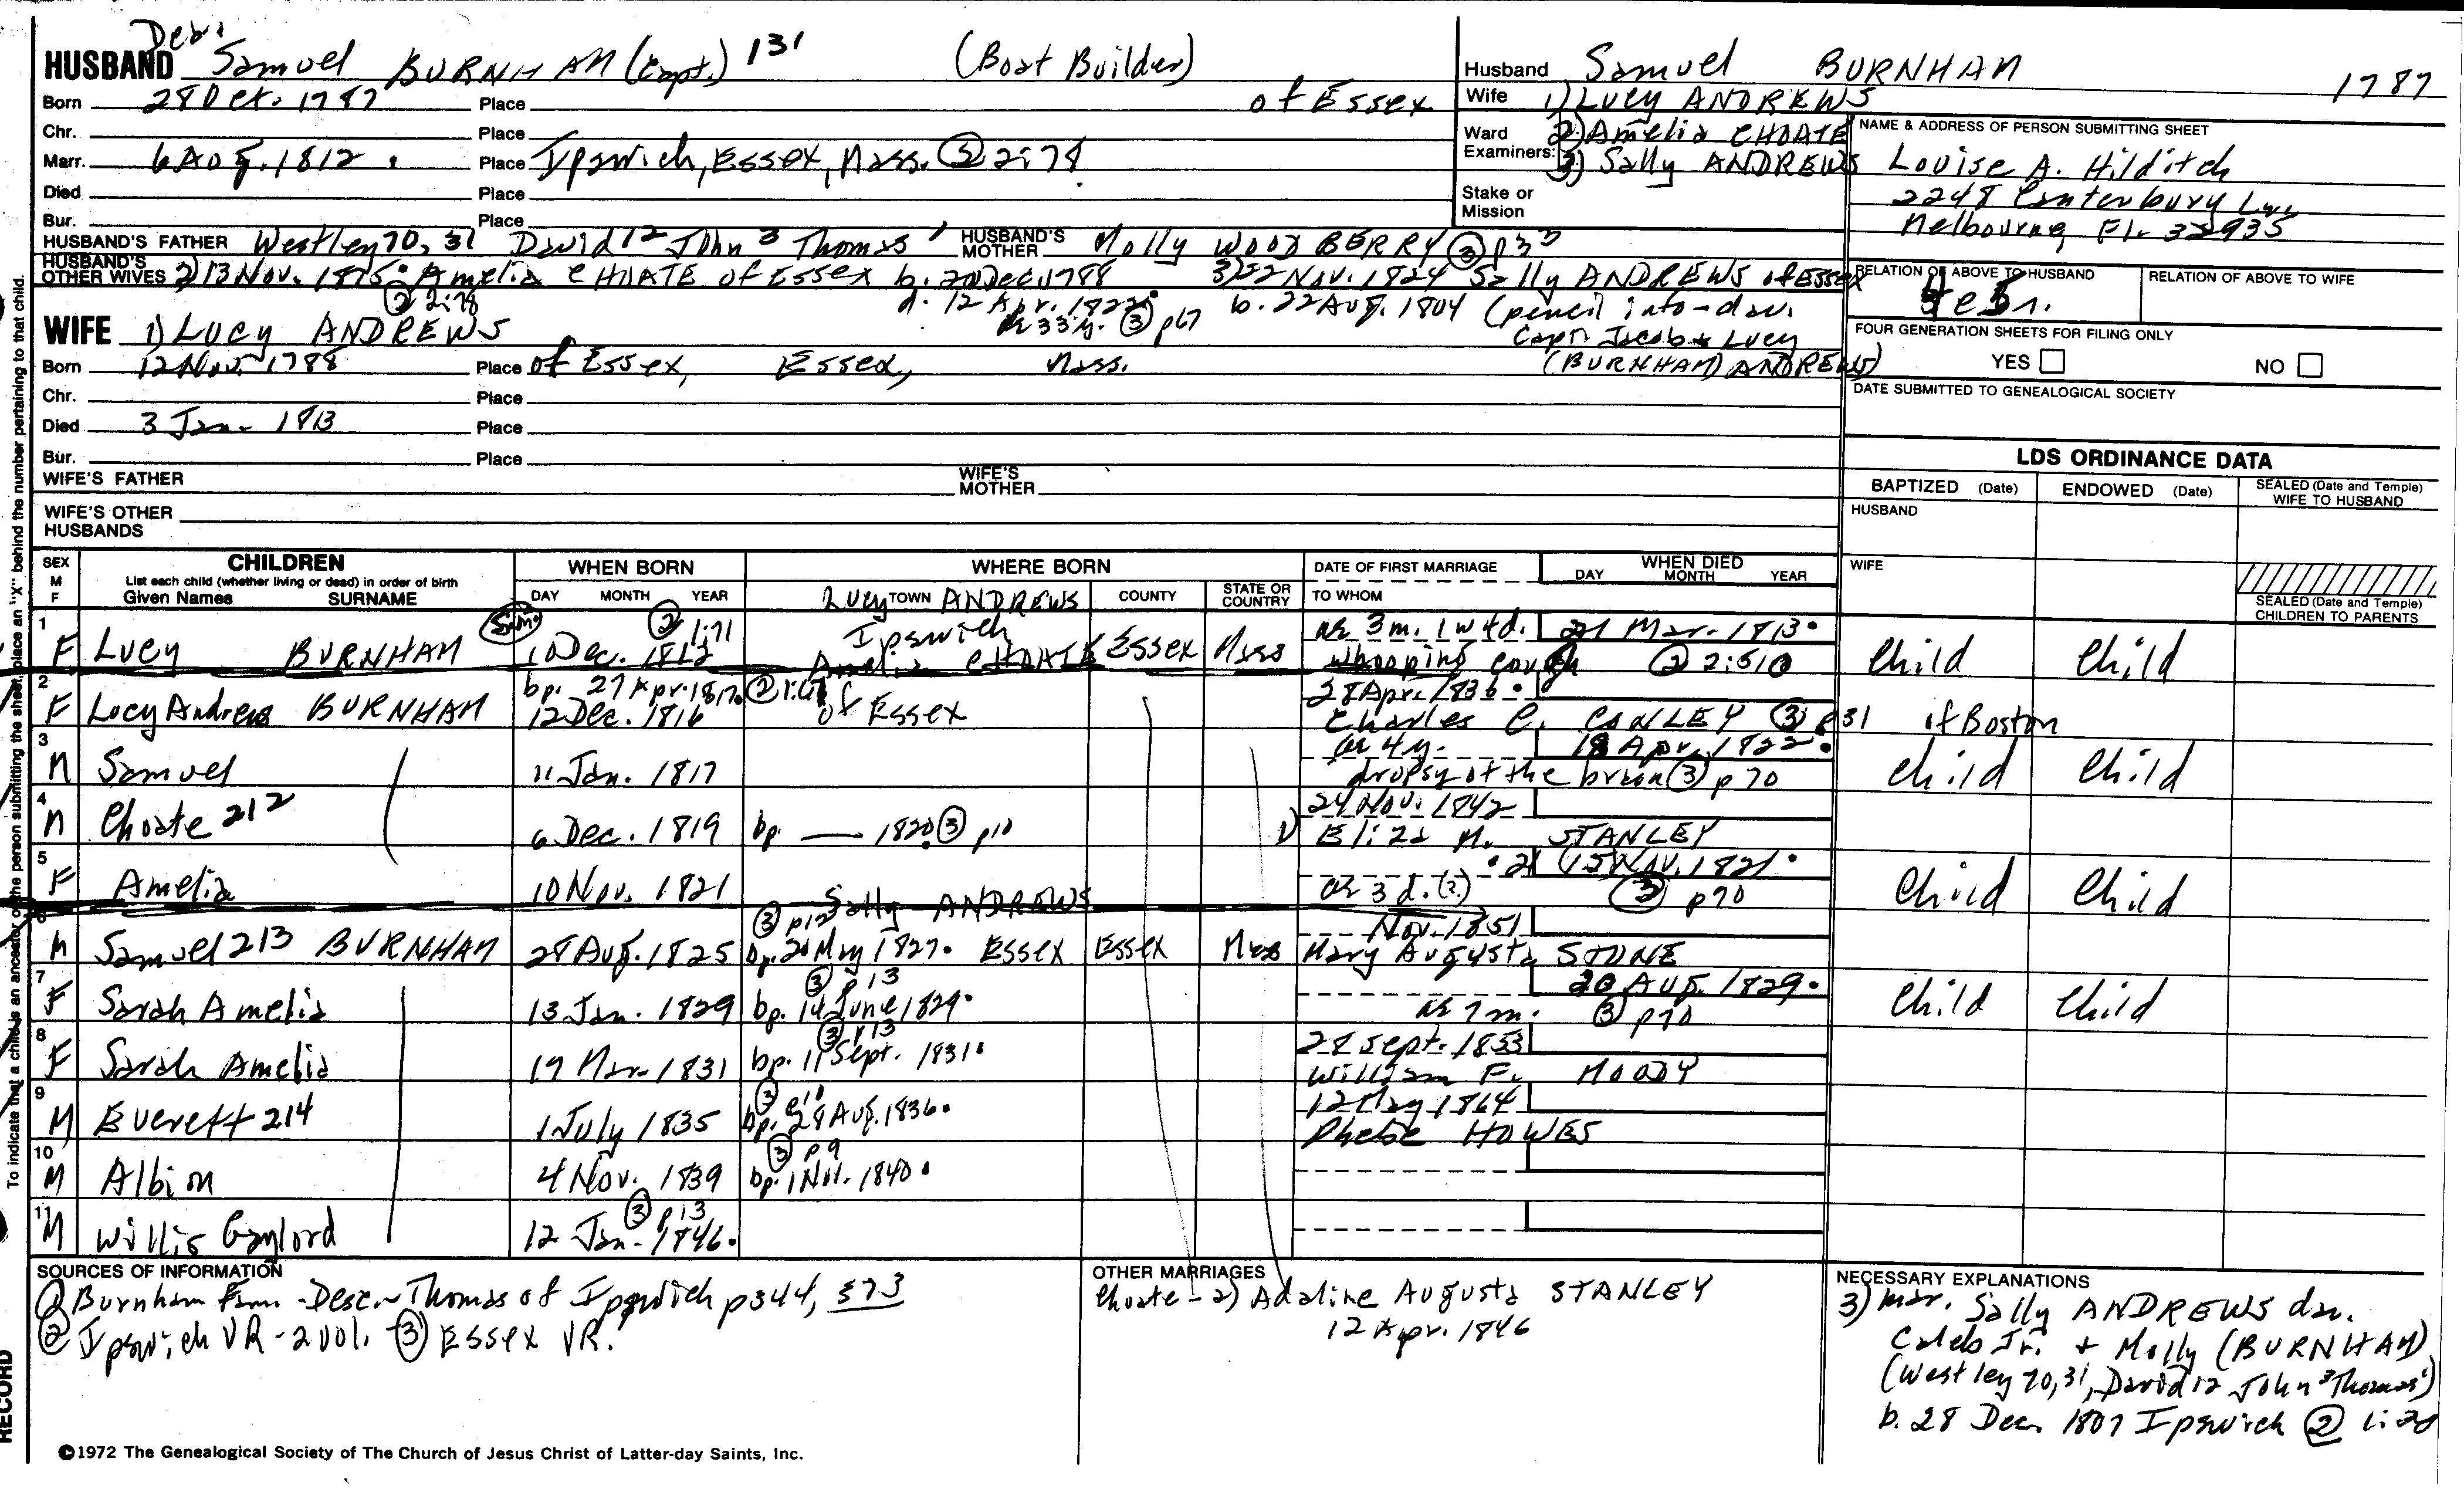 HUSBAND Samuel BURNHAM (Capt.) 131 (Boat Builder)
Born 28 Dec. 1787 Place of Essex
Chr. Place
Marr. 6 Aug. 1812 . Place Ipswich, Essex, Mass. ② 2:78
Died Place
Bur. Place
HUSBAND'S FATHER Westley 70, 31 David 12 John 3 Thomas 1 HUSBAND'S MOTHER Molly WOODBERRY ③ p33
HUSBAND'S OTHER WIVES 2) 13 Nov. 1815 . Amelia CHOATE of Essex b. 20 Dec. 1788 3) 22 Nov. 1824 Sally ANDREWS of Essex
② 2:78 d. 12 Apr. 1822 b. 22 Aug. 1804 (pencil info - dau.
ae 33 y. ③ p67 Capt. Jacob & Lucy
(BURNHAM) ANDREWS)
WIFE 1) Lucy ANDREWS
Born 12 Nov. 1788 Place of Essex, Essex, Mass.
Chr. Place
Died 3 Jan. 1813 Place
Bur. Place
WIFE'S FATHER WIFE'S MOTHER
WIFE'S OTHER HUSBANDS
Husband Samuel BURNHAM 1787
Wife 1) Lucy ANDREWS
2) Amelia CHOATE
3) Sally ANDREWS
Ward Examiners:
Stake or Mission
NAME & ADDRESS OF PERSON SUBMITTING SHEET
Louise A. Hilditch
2248 Canterbury
Melbourne, Fl. 32935
RELATION OF ABOVE TO HUSBAND RELATION OF ABOVE TO WIFE
FOUR GENERATION SHEETS FOR FILING ONLY
YES NO
DATE SUBMITTED TO GENEALOGICAL SOCIETY
LDS ORDINANCE DATA
BAPTIZED (Date) ENDOWED (Date) SEALED (Date and Temple) WIFE TO HUSBAND
HUSBAND
WIFE
SEALED (Date and Temple) CHILDREN TO PARENTS
SEX M F CHILDREN List each child (whether living or dead) in order of birth Given Names SURNAME
WHEN BORN DAY MONTH YEAR
WHERE BORN TOWN COUNTY STATE OR COUNTRY
DATE OF FIRST MARRIAGE TO WHOM
WHEN DIED DAY MONTH YEAR
Lucy ANDREWS
1 F Lucy BURNHAM 10 Dec. 1812 ② 1:71 Ipswich Essex Mass ae 3 m. 1 w 4 d. 21 Mar. 1813 . whooping cough ② 2:510 Child Child
Amelia CHOATE
2 F Lucy Andrews BURNHAM bp. 27 Apr. 1817 12 Dec. 1816 of Essex 28 Apr. 1836 . Charles C. CONLEY ③ p31 of Boston
3 M Samuel 11 Jan. 1817 ae 4 y. 18 Apr. 1822 . dropsy of the brain ③ p70 Child Child
4 M Choate 212 6 Dec. 1819 bp. — 1820 ③ p10 24 Nov. 1842 1) Eliza M. STANLEY
5 F Amelia 10 Nov. 1821 ae 3 d. (?) 15 Nov. 1821 . ③ p70 Child Child
Sally ANDREWS
6 M Samuel 213 BURNHAM 28 Aug. 1825 ③ p12 bp. 20 May 1827 . Essex Essex Mass Nov. 1851 Mary Augusta STONE
7 F Sarah Amelia 13 Jan. 1829 ③ p13 bp. 14 June 1829 . ae 7 m. 20 Aug. 1829 . ③ p70 Child Child
8 F Sarah Amelia 19 Mar. 1831 ③ p13 bp. 11 Sept. 1831 . 28 Sept. 1853 William F. MOODY
9 M Everett 214 1 July 1835 ③ p10 bp. 28 Aug. 1836 . 12 May 1864 Phebe HOWES
10 M Albion 4 Nov. 1839 ③ p9 bp. 1 Nov. 1840 .
11 M Willis Gaylord 12 Jan. 1846 . ③ p13
SOURCES OF INFORMATION
① Burnham Fam - Desc. Thomas of Ipswich p344, 373
② Ipswich VR - 2 vol. - ③ Essex VR.
OTHER MARRIAGES
Choate - 2) Adaline Augusta STANLEY
12 Apr. 1846
NECESSARY EXPLANATIONS
3) mar. Sally ANDREWS dau.
Caleb Jr. + Molly (BURNHAM)
(Westley 70, 31, David 12 John 3 Thomas 1)
b. 28 Dec. 1807 Ipswich ②
©1972 The Genealogical Society of The Church of Jesus Christ of Latter-day Saints, Inc.
To indicate that a child is an ancestor of the person submitting the sheet, place an "X" behind the number pertaining to that child.
RECORD